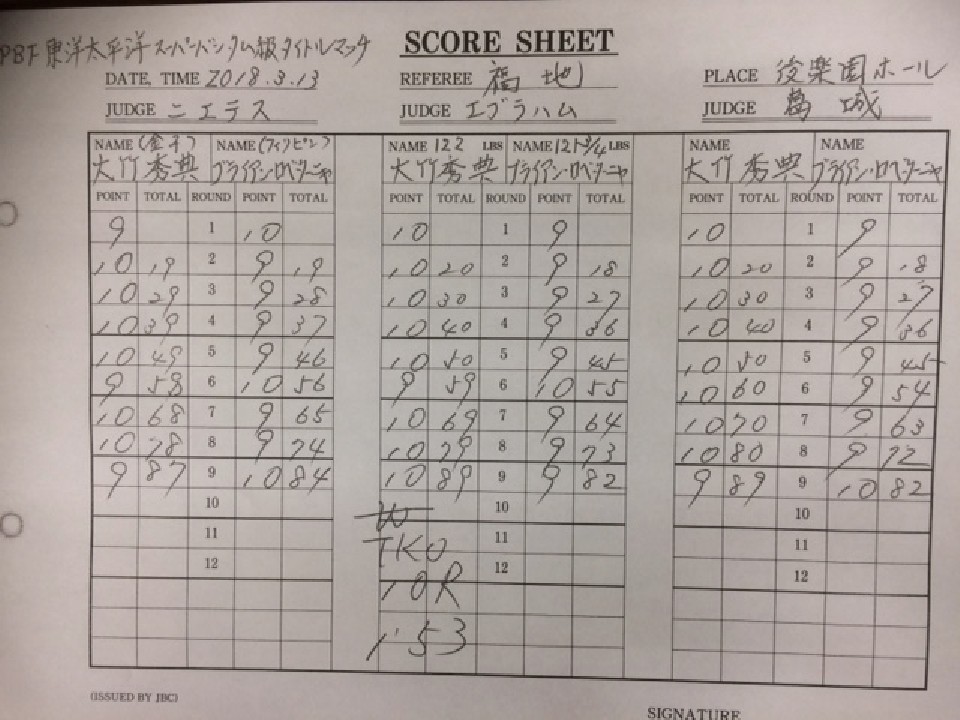 PBF 東洋太平洋 スーパーバンタム級タイトルマッチ
SCORE SHEET
DATE, TIME 2018.3.13 REFEREE 福地 PLACE 後楽園ホール
JUDGE ニエテス JUDGE エブラハム JUDGE 葛城
NAME (金子) NAME (フィリピン) NAME 122 LBS NAME 121 3/4 LBS NAME NAME
大竹秀典 ブライアン・ロベターニャ 大竹秀典 ブライアン・ロベターニャ 大竹秀典 ブライアン・ロベターニャ
POINT TOTAL ROUND POINT TOTAL POINT TOTAL ROUND POINT TOTAL POINT TOTAL ROUND POINT TOTAL
9 1 10 10 1 9 10 1 9
10 19 2 9 19 10 20 2 9 18 10 20 2 9 18
10 29 3 9 28 10 30 3 9 27 10 30 3 9 27
10 39 4 9 37 10 40 4 9 36 10 40 4 9 36
10 49 5 9 46 10 50 5 9 45 10 50 5 9 45
9 58 6 10 56 9 59 6 10 55 10 60 6 9 54
10 68 7 9 65 10 69 7 9 64 10 70 7 9 63
10 78 8 9 74 10 79 8 9 73 10 80 8 9 72
9 87 9 10 84 10 89 9 9 82 9 89 9 10 82
10 W 10 10
11 TKO 11 11
12 12 12
10R
1'53
(ISSUED BY JBC)
SIGNATURE